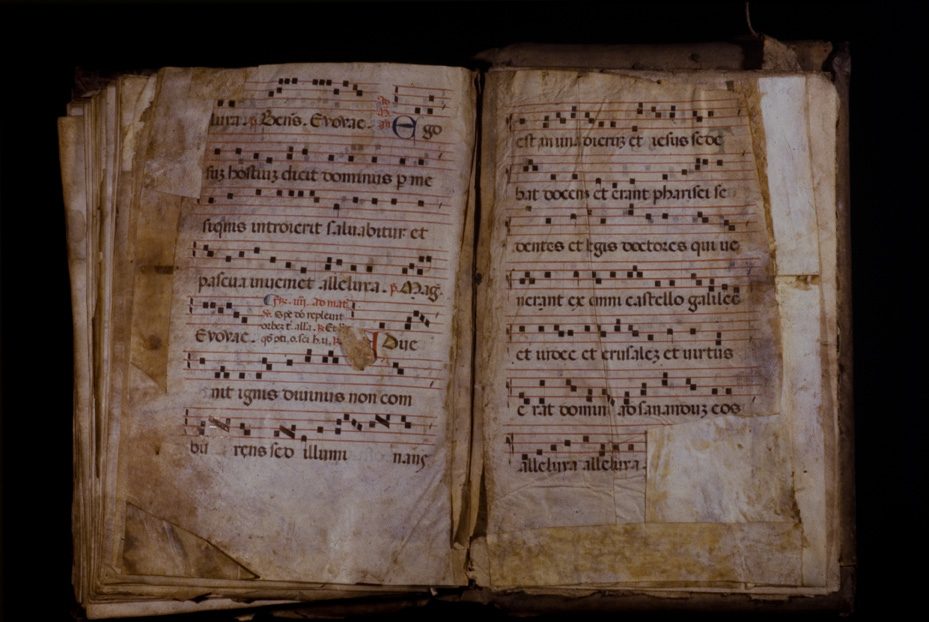 luya. Bens. Evovae. Ego
suz hostuiz dicit dominus p me
siquis introierit saluabitur et
pascua inueniet alleluya. Mag.
spe do repleuit
Evovae.
Due
nit ignis diuinus non com
bu rens sed illumi nans
est in una dieruz et iesus sede
bat docens et erant pharisei se
dentes et legis doctores qui ue
nerant ex omni castello galilee
et iudee et ierusalez et uirtus
e rat domini ad sananduz eos
alleluya alleluya.